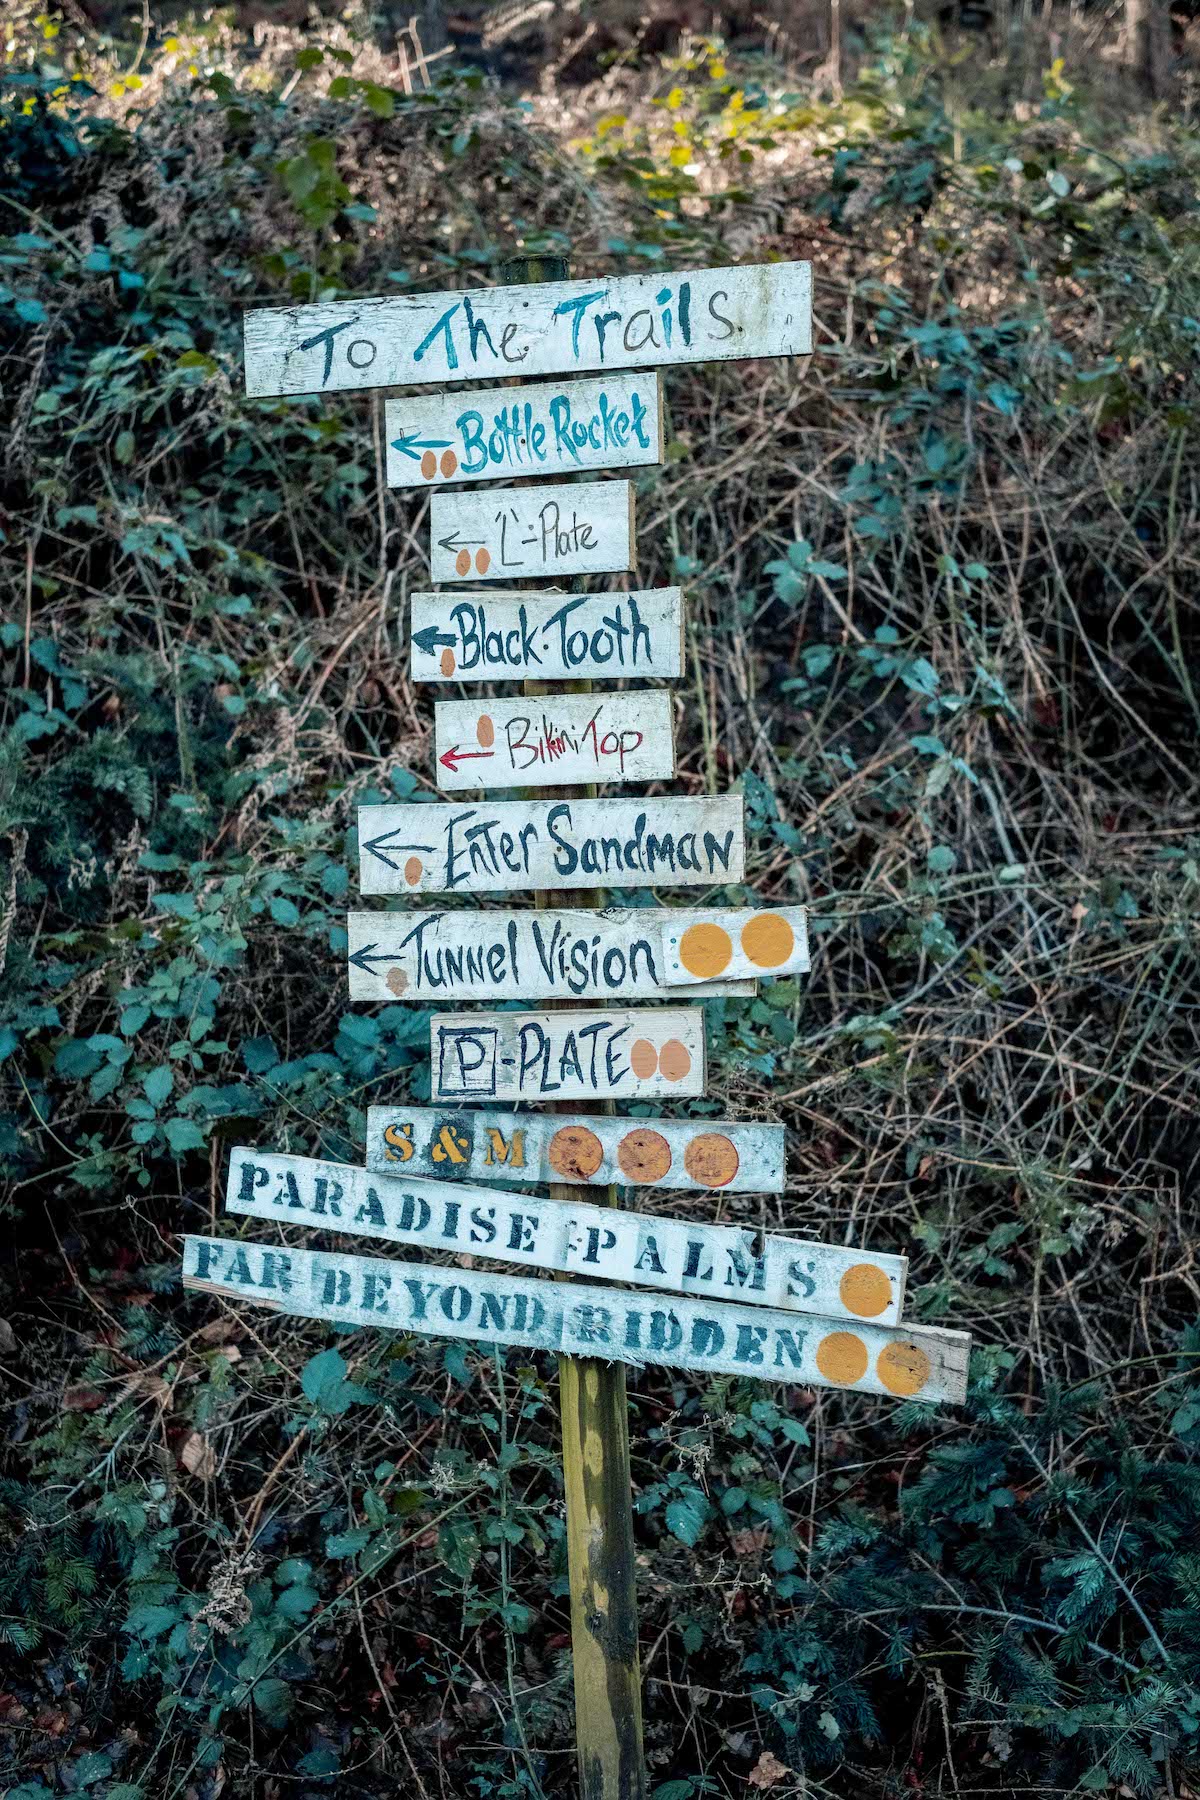 To The Trails.
Bottle Rocket
'L'-Plate
Black Tooth
Bikini Top
Enter Sandman
Tunnel Vision
P-PLATE
S & M
PARADISE PALMS
FAR BEYOND RIDDEN